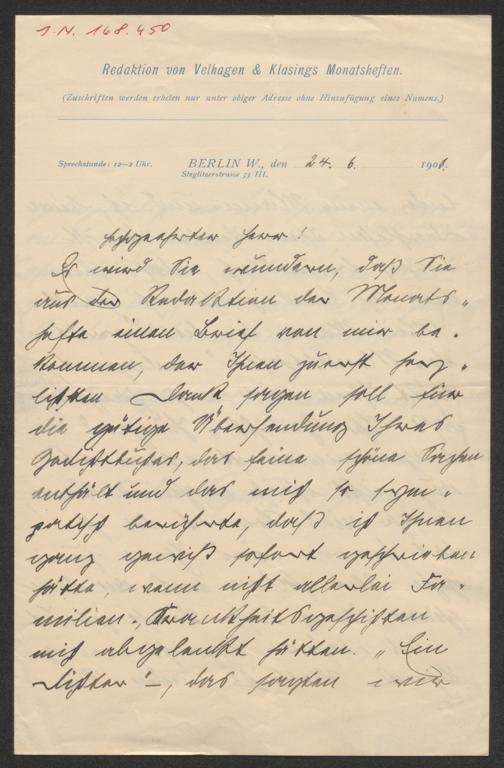 I.N. 168.450
Redaktion von Velhagen & Klasings Monatsheften.
(Zuschriften werden erbeten nur unter obiger Adresse ohne Hinzufügung eines Namens.)
Sprechstunde: 12—2 Uhr.
BERLIN W., den 24. 6. 1901.
Steglitzerstrasse 53 III.
Hochgeehrter Herr!
Es wird Sie wundern, daß Sie
aus der Redaktion der Monats-
hefte einen Brief von mir be-
kommen, der Ihnen zuerst herz-
lichsten Dank sagen soll für
die gütige Übersendung Ihres
Gedichtbuches, das seine schöne Sachen
enthält und das mich so sym-
patisch berührte, daß ich Ihnen
ganz gewiß sofort geschrieben
hätte, wenn nicht allerlei Fa-
milien-, Krankheitsgeschichten
mich abgelenkt hätten. „Ein
Dichter"—, das sagten wir